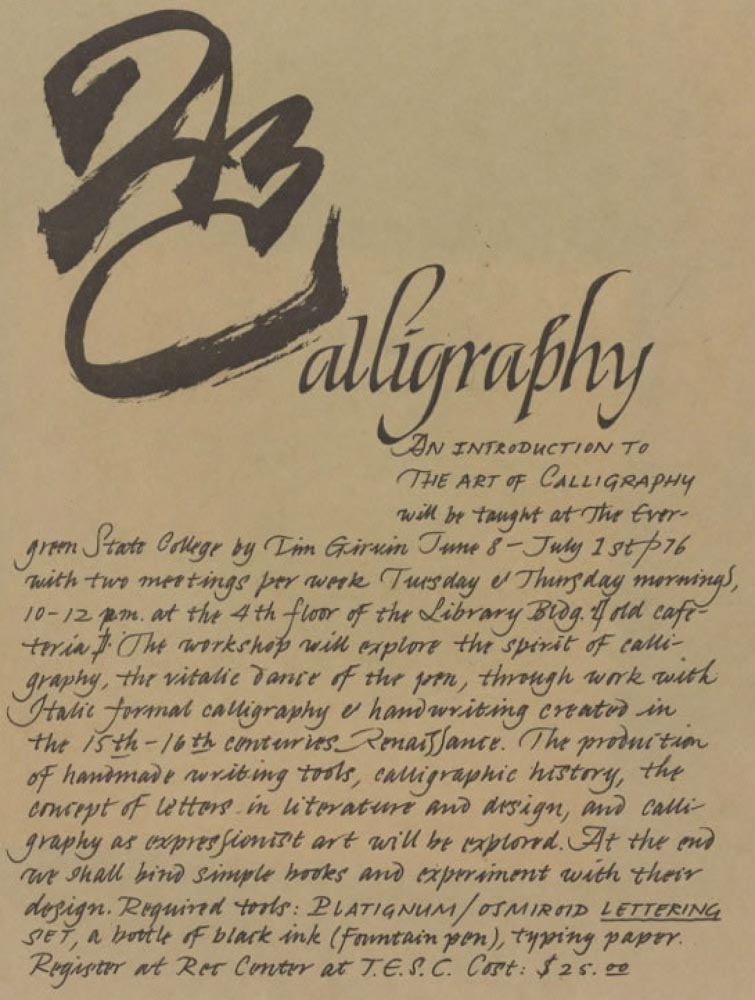 ABC
Calligraphy
AN INTRODUCTION TO
THE ART OF CALLIGRAPHY
will be taught at The Ever-
green State College by Tim Girvin June 8 - July 1st / 76
with two meetings per week Tuesday & Thursday mornings,
10-12 pm. at the 4th floor of the Library Bldg. [old cafe-
teria]. The workshop will explore the spirit of calli-
graphy, the vitalic dance of the pen, through work with
Italic formal calligraphy & handwriting created in
the 15th - 16th centuries Renaissance. The production
of handmade writing tools, calligraphic history, the
concept of letters in literature and design, and calli-
graphy as expressionist art will be explored. At the end
we shall bind simple books and experiment with their
design. Required tools: PLATIGNUM/OSMIROID LETTERING
SET, a bottle of black ink (fountain pen), typing paper.
Register at Rec Center at T.E.S.C. Cost: $25.00